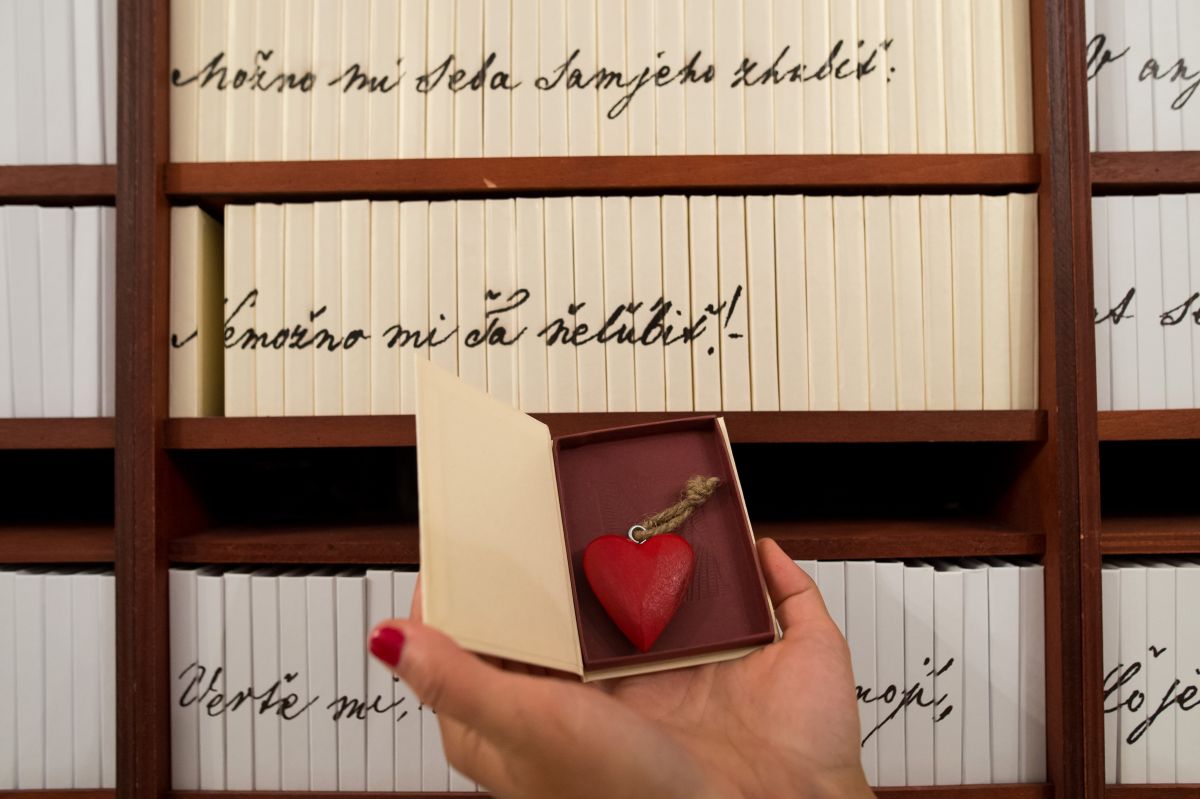 Možno mi seba samjeho zhubiť:
Nemožno mi Ťa ňeľúbiť!-
Verťe mi, mojí,
V
Čo je